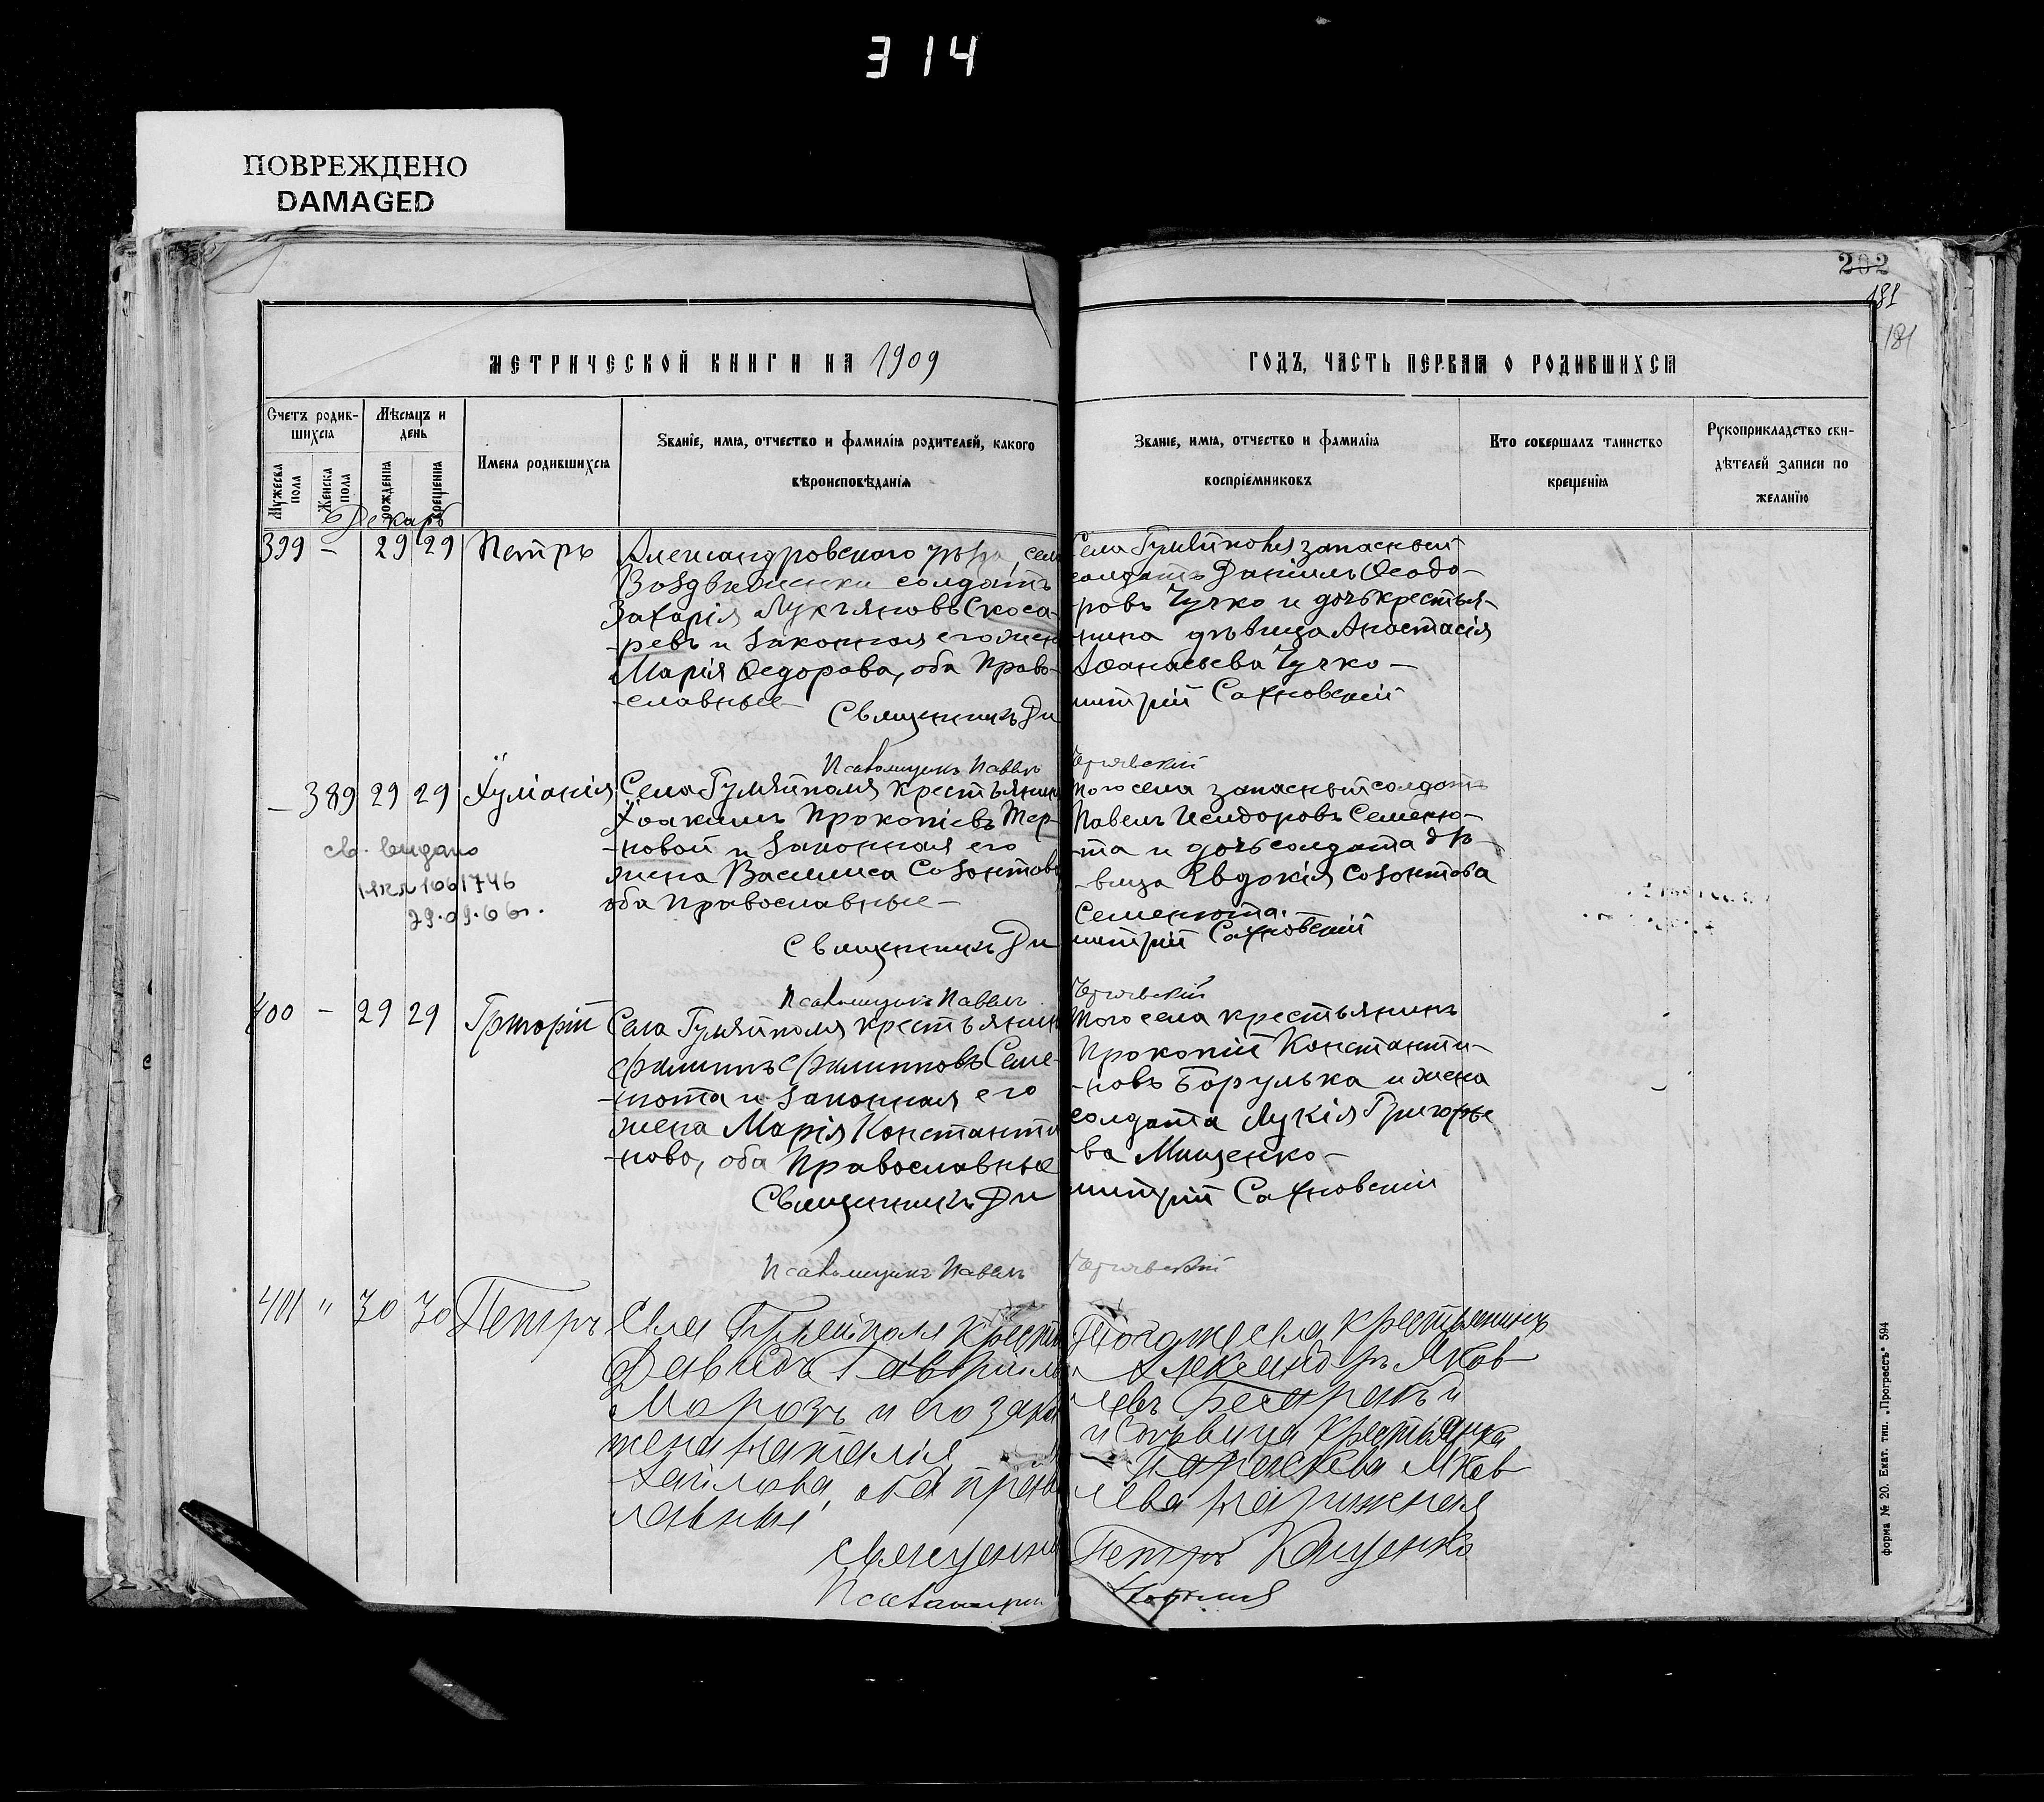 314
ПОВРЕЖДЕНО
DAMAGED
202
181
181
МЕТРИЧЕСКОЙ КНИГИ НА 1909
ГОДЪ, ЧАСТЬ ПЕРВАЯ О РОДИВШИХСЯ
Счетъ родив-
шихся
Мужеска пола
Женска пола
Мѣсяцъ и
день
рожденія
крещенія
Имена родившихся
Званіе, имя, отчество и фамилія родителей, какого
вѣроисповѣданія
Званіе, имя, отчество и фамилія
воспріемниковъ
Кто совершалъ таинство
крещенія
Рукоприкладство сви-
дѣтелей записи по
желанію
Декабрь
399 – 29 29 Петръ
Александровскаго уѣзда, села
Воздвиженки солдатъ
Захарія Лукъяновъ Скоса-
-ревъ и законная его жена
Марія Ѳедорова, оба Право-
-славные
Села Гуляйполя запасный
солдатъ Даніилъ Ѳеодо-
-ровъ Чучко и дочь крестья-
-нина дѣвица Анастасія
Аѳанасьева Чучко –
Священникъ Димитрій Сахновскій
Псаломщикъ Павелъ
– 389 29 29 Іуліанія
св. видано
1061746
29.09.66г.
Села Гуляйполя крестьянинъ
Іоакимъ Прокопіевъ Тер-
-новой и законная его
жена Василиса Созонтова
оба православные –
Того села запасный солдатъ
Павелъ Исидоровъ Семеню-
-та и дочь солдата дѣ-
-вица Евдокія Созонтова
Семенюта.
Священникъ Димитрій Сахновскій
Псаломщикъ Павелъ
400 – 29 29 Григорій
Села Гуляйполя крестьянинъ
Филиппъ Филипповъ Семе-
-нюта и законная его
жена Марія Константи-
-нова, оба Православные
Того села крестьянинъ
Прокопій Константи-
-новъ Борулька и жена
солдата Лукія Григорье
-ва Мищенко –
Священникъ Димитрій Сахновскій
Псаломщикъ Павелъ
401 " 30 30 Петръ
Села Гуляйполя крест
Давидъ Гавріилъ
Морозъ и его зако
жена Наталія
оба право
славные
Тогоже села крестьянинъ
Александръ Яков-
левъ
и вдовица крестьянка
Параскева Яков-
лева
Священникъ Петръ Кащенко
Псаломщикъ
форма № 20. Екат. тип. „Прогрессъ" 594